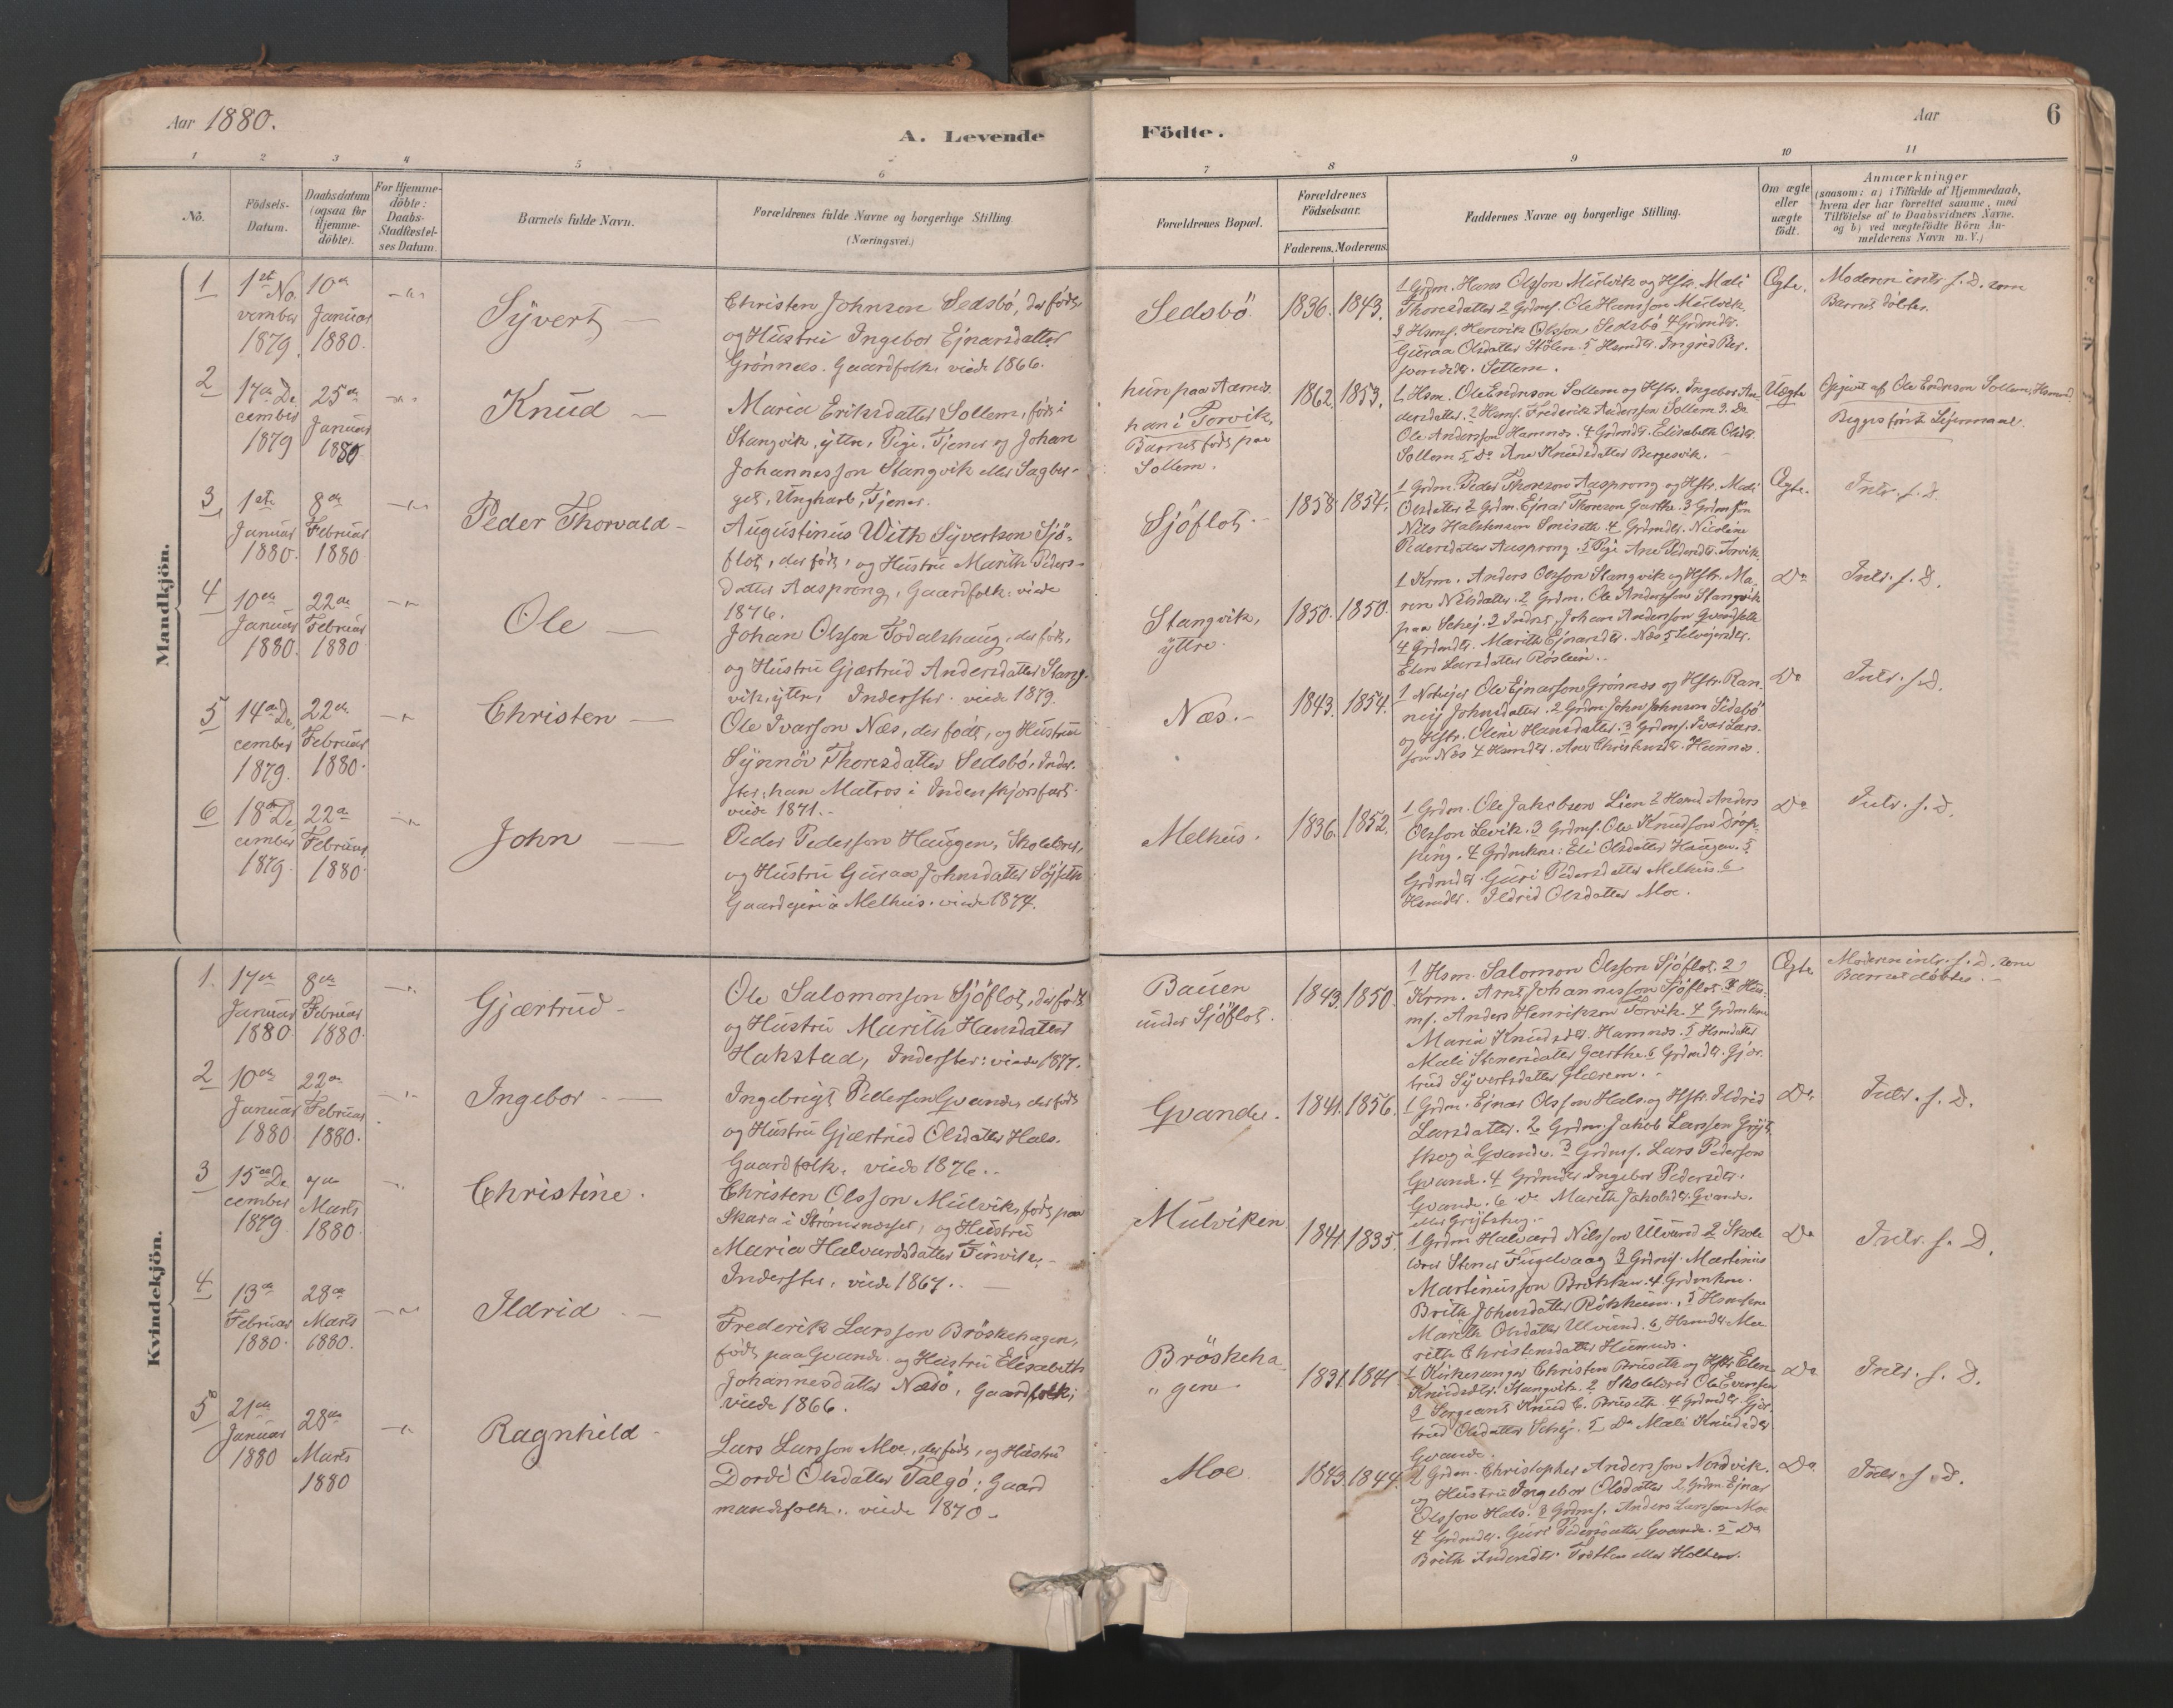 Aar 1880.
A. Levende
Födte.
Aar
6
1 2 3 4 5 6 7 8 9 10 11
No.
Födsels-
Datum.
Daabsdatum
(ogsaa for
Hjemme-
döbte).
For Hjemme-
döbte:
Daabs-
Stadfæstel-
ses Datum.
Barnets fulde Navn.
Forældrenes fulde Navne og borgerlige Stilling.
(Næringsvei.)
Forældrenes Bopæl.
Forældrenes
Födselsaar.
Faderens. Moderens.
Faddernes Navne og borgerlige Stilling.
Om ægte
eller
uægte
födt.
Anmærkninger
(saasom: a) i Tilfælde af Hjemmedaab,
hvem der har forrettet samme, med
Tilföielse af to Daabsvidners Navne,
og b) ved uægtefödte Börn An-
melderens Navn m. V.)
Mandkjön.
1
1st No-
vember
1879.
10de
Januar
1880.
Syvert
Christen Johnson Sedsbö, der födt,
og Hustru Ingebor Ejnarsdatter
Grönnes. Gaardfolk. viede 1866.
Sedsbö
1836. 1843.
1 Grdm. Hans Olsson Mulvik og Hstr. Mali
Thoresdatter 2 Grdms. Ole Hansson Mulvik.
3 Hsms. Henrik Olsson Sedsbö 4 Grdmdtr.
Guraa Olsdatter Stölen. 5 Hsmdtr. Ingrid
Settem.
Ægte.
Moderen intr. s. D. som
Barnet döbtes.
2
17de De-
cember
1879
25de
Januar
1880
Knud
Maria Eriksdatter Sollem, födt i
Stangvik, ytre, Pige, Tjener og Johan
Johannesson Stangvik eller Sagber-
get, Ungkarl, Tjener.
hun paa Aarnes
han i Torvik.
Barnet födt paa
Sollem.
1862. 1853.
1 Hsm. Ole Endreson Sollem og Hstr. Ingebor An-
dersdatter. 2 Hsms. Frederik Andersson Sollem 3. Do
Ole Andersson Hamnes. 4 Grdmdtr. Elisabeth Olsdtr.
Sollem 5 Do Ane Knudsdatter Bergesvik.
Uægte
Opgivet af Ole Endreson Sollem, Husmand
Begges förste Lejermaal.
3
1ste
Januar
1880.
8de
Februar
1880
Peder Thorvald
Augustinus With Syvertson Sjö-
flot, der födt, og Hustru Marith Peders-
datter Aasprong, Gaardfolk. viede
1876.
Sjöflot.
1858 1854.
1 Grdm. Peder Thoreson Aasprong og Hstr. Mali
Olsdatter 2 Grdm. Ejnar Thoreson Garthe. 3 Grdmsön
Nils Halstenson Smiseth. 4 Grdmdtr. Nicoline
Pedersdatter Aasprong. 5 Pige Ane Pedersdtr. Torvik
Ægte.
Intr. s. D.
4
10de
Januar
1880.
22de
Februar
1880
Ole
Johan Olsson Todalshaug, der födt,
og Hustru Gjærtrud Andersdatter Stang-
vik, ytre, Inderster. viede 1879.
Stangvik,
ytre.
1850. 1850.
1 Krm. Anders Olsson Stangvik og Hstr. Ma-
ren Nilsdatter. 2 Grdm. Ole Andersson Stangvik
paa Schej. 3 Indrst. Johan Andersson
4 Grdmdtr. Marith Ejnarsdtr. Næs 5 Selvejersdtr.
Elen Larsdatter Röslein.
Do
Intr. s. D.
5
14de De-
cember
1879.
22de
Februar
1880.
Christen
Ole Ivarson Næs, der födt, og Hustru
Synnöv Thoresdatter Sedsbö, Inder-
ster: han Matros i Indenskjersfart.
viede 1871.
Næs.
1843. 1854.
1 Notejer Ole Ejnarson Grönnes og Hstr. Ran-
neij Johnsdatter. 2 Grdm. John Johnson Sedsbö
og Hstr. Oline Hansdatter. 3 Grdms. Ivar Lars-
son Næs 4 Hsmdtr. Ane Christensdtr. Hamnes.
Do
Intr. s. D.
6
18de De-
cember
1879.
22de
Februar
1880.
John
Peder Pederson Haugen, Skolelærer,
og Hustru Guraa Johnsdatter Söjseth
Gaardejer i Melhus. viede 1874.
Melhus.
1836. 1852.
1 Grdm. Ole Jakobson Lien 2 Hsmd Anders
Olsson Levik. 3 Grdms. Ole Knudson Dröp-
ping. 4 Grdmkone: Eli Olsdatter Haugen. 5
Grdmdtr. Guri Pedersdatter Melhus. 6
Hsmdtr. Ildrid Olsdatter Moe.
Do
Intr. s. D.
Kvindekjön.
1.
17de
Januar
1880
8de
Februar
1880.
Gjærtrud
Ole Salomonson Sjöflot, der födt
og Hustru Marith Hansdatter
Hakstad, Inderster: viede 1877.
Bauen
under Sjöflot.
1843. 1850.
1 Hsm. Salomon Olsson Sjöflot. 2
Krm. Arnt Johannesson Sjöflot. 3 Hus-
ms. Anders Henrikson Torvik. 4 Grdmkone
Maria Knudsdtr. Hamnes. 5 Hsmdatter
Mali Stenersdatter Garthe. 6 Grdmdtr. Gjær-
trud Syvertsdatter Glærem.
Ægte
Moderen intr. s. D. som
Barnet döbtes.
2
10de
Januar
1880
22de
Februar
1880.
Ingebor
Ingebrigt Pederson Qvande, der födt
og Hustru Gjærtrud Olsdatter Hals.
Gaardfolk. viede 1876.
Qvande.
1841. 1856.
1 Grdm. Ejnar Olsson Hals. og Hstr. Ildrid
Larsdatter. 2 Grdm. Jakob Larsson Grijt-
skog à Qvande. 3 Grdms. Lars Pederson
Qvande. 4 Grdmdtr. Ingebor Pedersdtr.
Qvande. 6 Do Marith Jakobsdtr. Qvande.
eller Grijtskog.
Do
Intr. s. D.
3
15de De-
cember
1879.
7de
Marts
1880
Christine.
Christen Olsson Mulvik, födt paa
Skara i Strömsneset, og Hustru
Maria Halvardsdatter Torvik,
Inderster, viede 1867.
Mulviken
1841. 1835.
1 Grdm Halvard Nilsson Ulvund 2 Skole-
lærer Stener Fuglevaag 3 Grdms. Martinus
Martinusson Brökken. 4 Grdmkone.
Brith Johnsdatter Rökheim. 5 Hsmkone
Marith Olsdatter Ulvund. 6, Hsmdtr. Ma-
rith Christensdatter Hamnes.
Do
Intr. s. D.
4
13de
Februar
1880.
28de
Marts
1880.
Ildrid
Frederik Larsson Bröskehagen,
födt paa Qvande og Hustru Elisabeth
Johannesdatter Nedö, Gaardfolk;
viede 1866.
Bröskeha
"gen
1831. 1841.
1 Kirkesanger Christen Bruseth og Hstr. Elen
Knudsdtr. Stangvik. 2 Skolelærer Ole Evensen
3 Sergeant Knud C. Bruseth. 4 Grdmdtr. Gjær-
trud Olsdatter Schej. 5 Do Mali Knudsdtr
Qvande.
Do
Intr. s. D.
5
21de
Januar
1880
28de
Marts
1880
Ragnhild
Lars Larsson Moe, der födt, og Hustru
Dordi Olsdatter Talgö: Gaard
mandsfolk. viede 1870.
Moe
1843. 1844.
1 Grdm. Christopher Andersson Nordvik.
og Hustru Ingebor Olsdatter 2 Grdm. Ejnar
Olsson Hals. 3 Grdms. Anders Larsson Moe
4 Grdmdtr. Guri Pedersdatter Qvande. 5 Do
Brith Andersdtr. Trötten eller Holten.
Do
Intr. s. D.